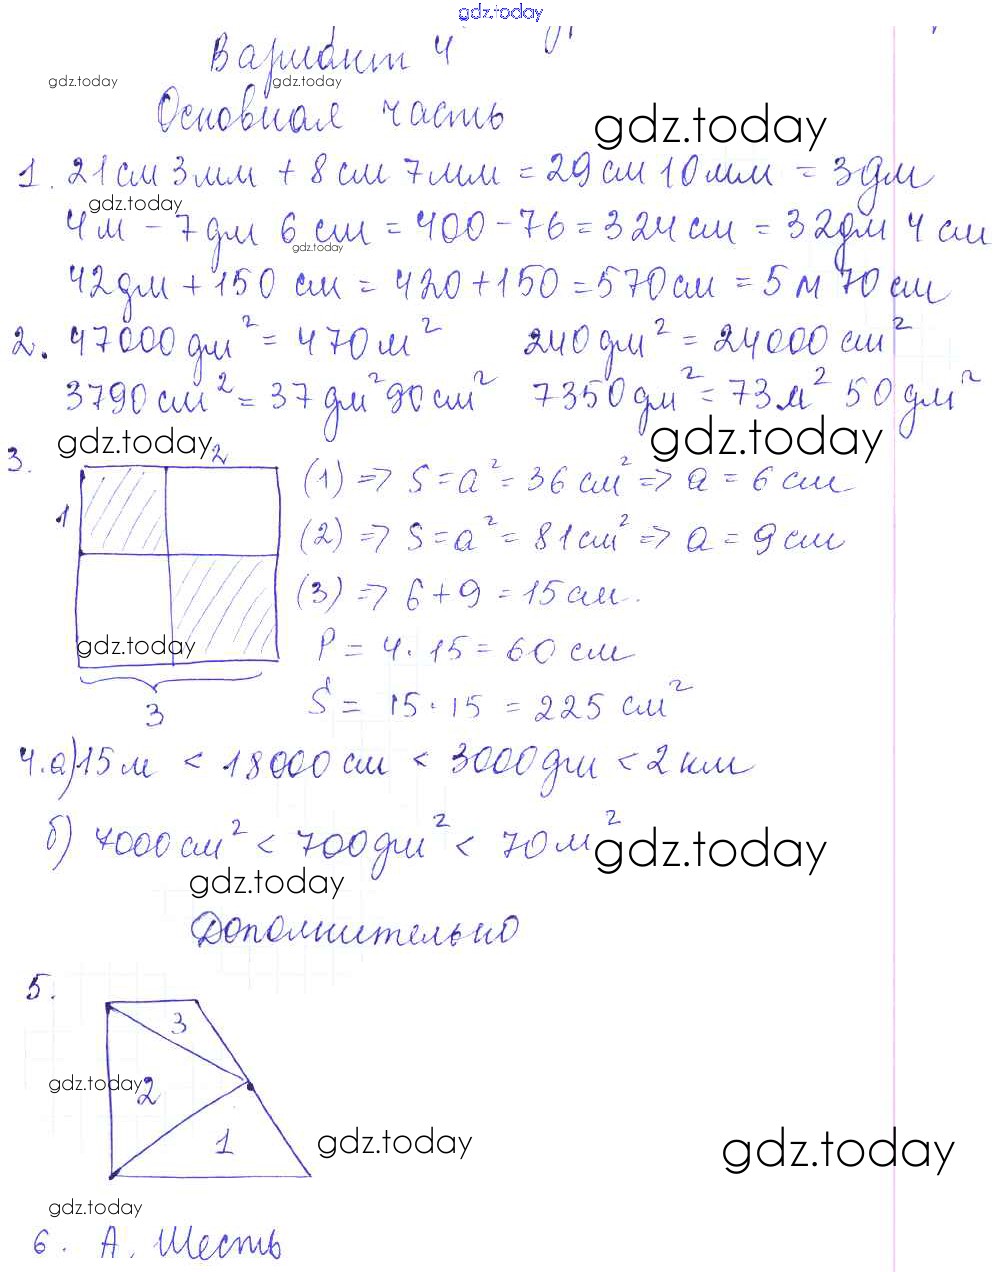 gdz.today
Вариант 4
gdz.today gdz.today
Основная часть
gdz.today
1. 21 см 3 мм + 8 см 7 мм = 29 см 10 мм = 3 дм
gdz.today
4 м - 7 дм 6 см = 400 - 76 = 324 см = 32 дм 4 см
gdz.today
42 дм + 150 см = 420 + 150 = 570 см = 5 м 70 см
2. 47000 дм² = 470 м² 240 дм² = 24000 см²
3790 см² = 37 дм² 90 см² 7350 дм² = 73 м² 50 дм²
gdz.today gdz.today
3.
2
1
(1) => S = a² = 36 см² => a = 6 см
(2) => S = a² = 81 см² => a = 9 см
(3) => 6 + 9 = 15 см.
gdz.today
P = 4 · 15 = 60 см
3
S = 15 · 15 = 225 см²
4. а) 15 м < 18000 см < 3000 дм < 2 км
б) 7000 см² < 700 дм² < 70 м²
gdz.today
gdz.today
Дополнительно
5.
3
gdz.today
2
1
gdz.today
gdz.today
gdz.today
6. А. Шесть